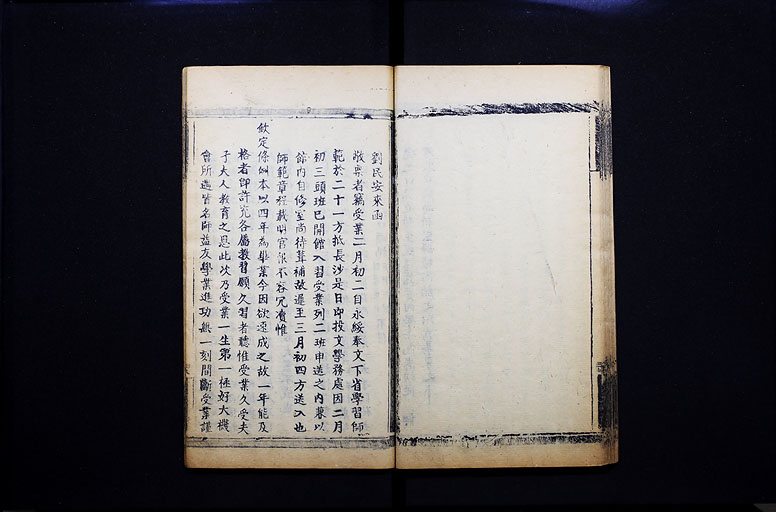 劉民安來函
敬稟者竊受業二月初二自永綏奉文下省學習師
範於二十一方抵長沙是日即投文學務處因二月
初三頭班已開館入習受業列二班申送之內暮以
餘內自修室尚待葺補故遲至三月初四方送入也
師範章程載明官報不容冗瀆惟
欽定條例本以四年為畢業今因欲速成之故一年能及
格者即許充各屬教習願久習者聽惟受業久受夫
子大人教育之恩此次乃受業一生第一極好大機
會所遇皆名師益友學業進功無一刻間斷受業謹